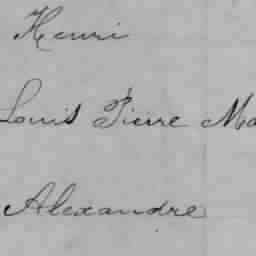 Henri
Louis Pierre Ma
Alexandre